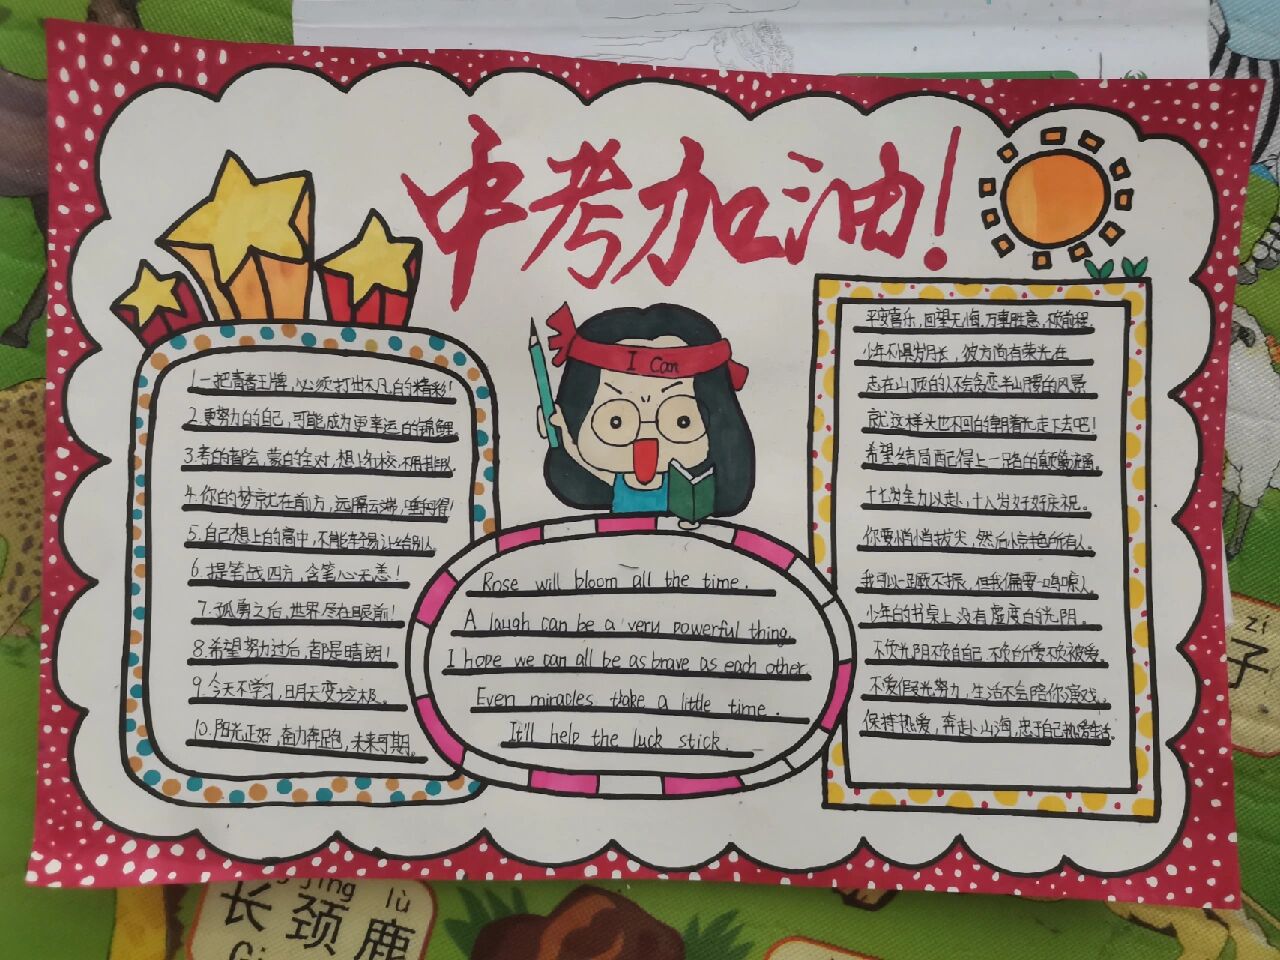 中考加油!
I Can
1.一把青春王牌,必须打出不凡的精彩!
2.更努力的自己,可能成为更幸运的锦鲤
3.考的都会,蒙的全对,想上名校,不用排队.
4.你的梦京尤在前方,远隔云端,唾可得!
5.自己想上的高中,不能轻易让给别人
6.提笔战四方,含笔心无恙!
7.孤勇之后,世界尽在眼前!
8.希望努力过后,都是晴朗!
9.今天不学习,明天变垃极.
10.阳光正好,奋力奔跑,未来可期.
Rose will bloom all the time.
A laugh can be a very powerful thing.
I hope we can all be as brave as each other.
Even miracles take a little time.
It'll help the luck stick.
平安喜乐,回望无悔,万事胜意,不负前程.
少年不惧岁月长,彼方尚有荣光在
志在山顶的人不会贪恋半山腰的风景
就这样头也不回的朝着光走下去吧!
希望结局配得上一路的颠簸流离.
十七岁全力以赴,十八岁好好庆祝.
你要悄悄拔尖,然后惊艳所有人.
我可以一蹶不振,但我偏要一鸣惊人
少年的书桌上没有虚度的光阴.
不负光阴不负自己,不负所爱不负被爱.
不爱假装努力,生活不会陪你演戏.
保持热爱,奔赴山海,忠于自己热爱生活.
zi
子
jǐng
lù
长颈鹿
Gi